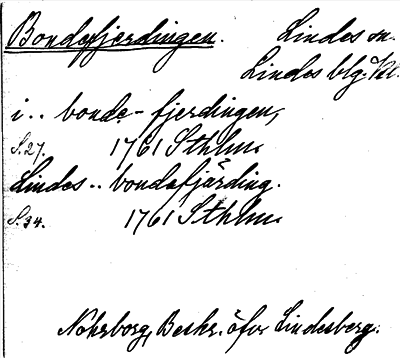 Bondefjerdingen. Lindes sn.
Lindes blg. Kl.
i.. bonde-fjerdingen,
S.27. 1761 Sthlm.
Lindes.. bondafjärding.
S.34. 1761 Sthlm.
Nohrborg, Beskr. öfver Lindesberg.